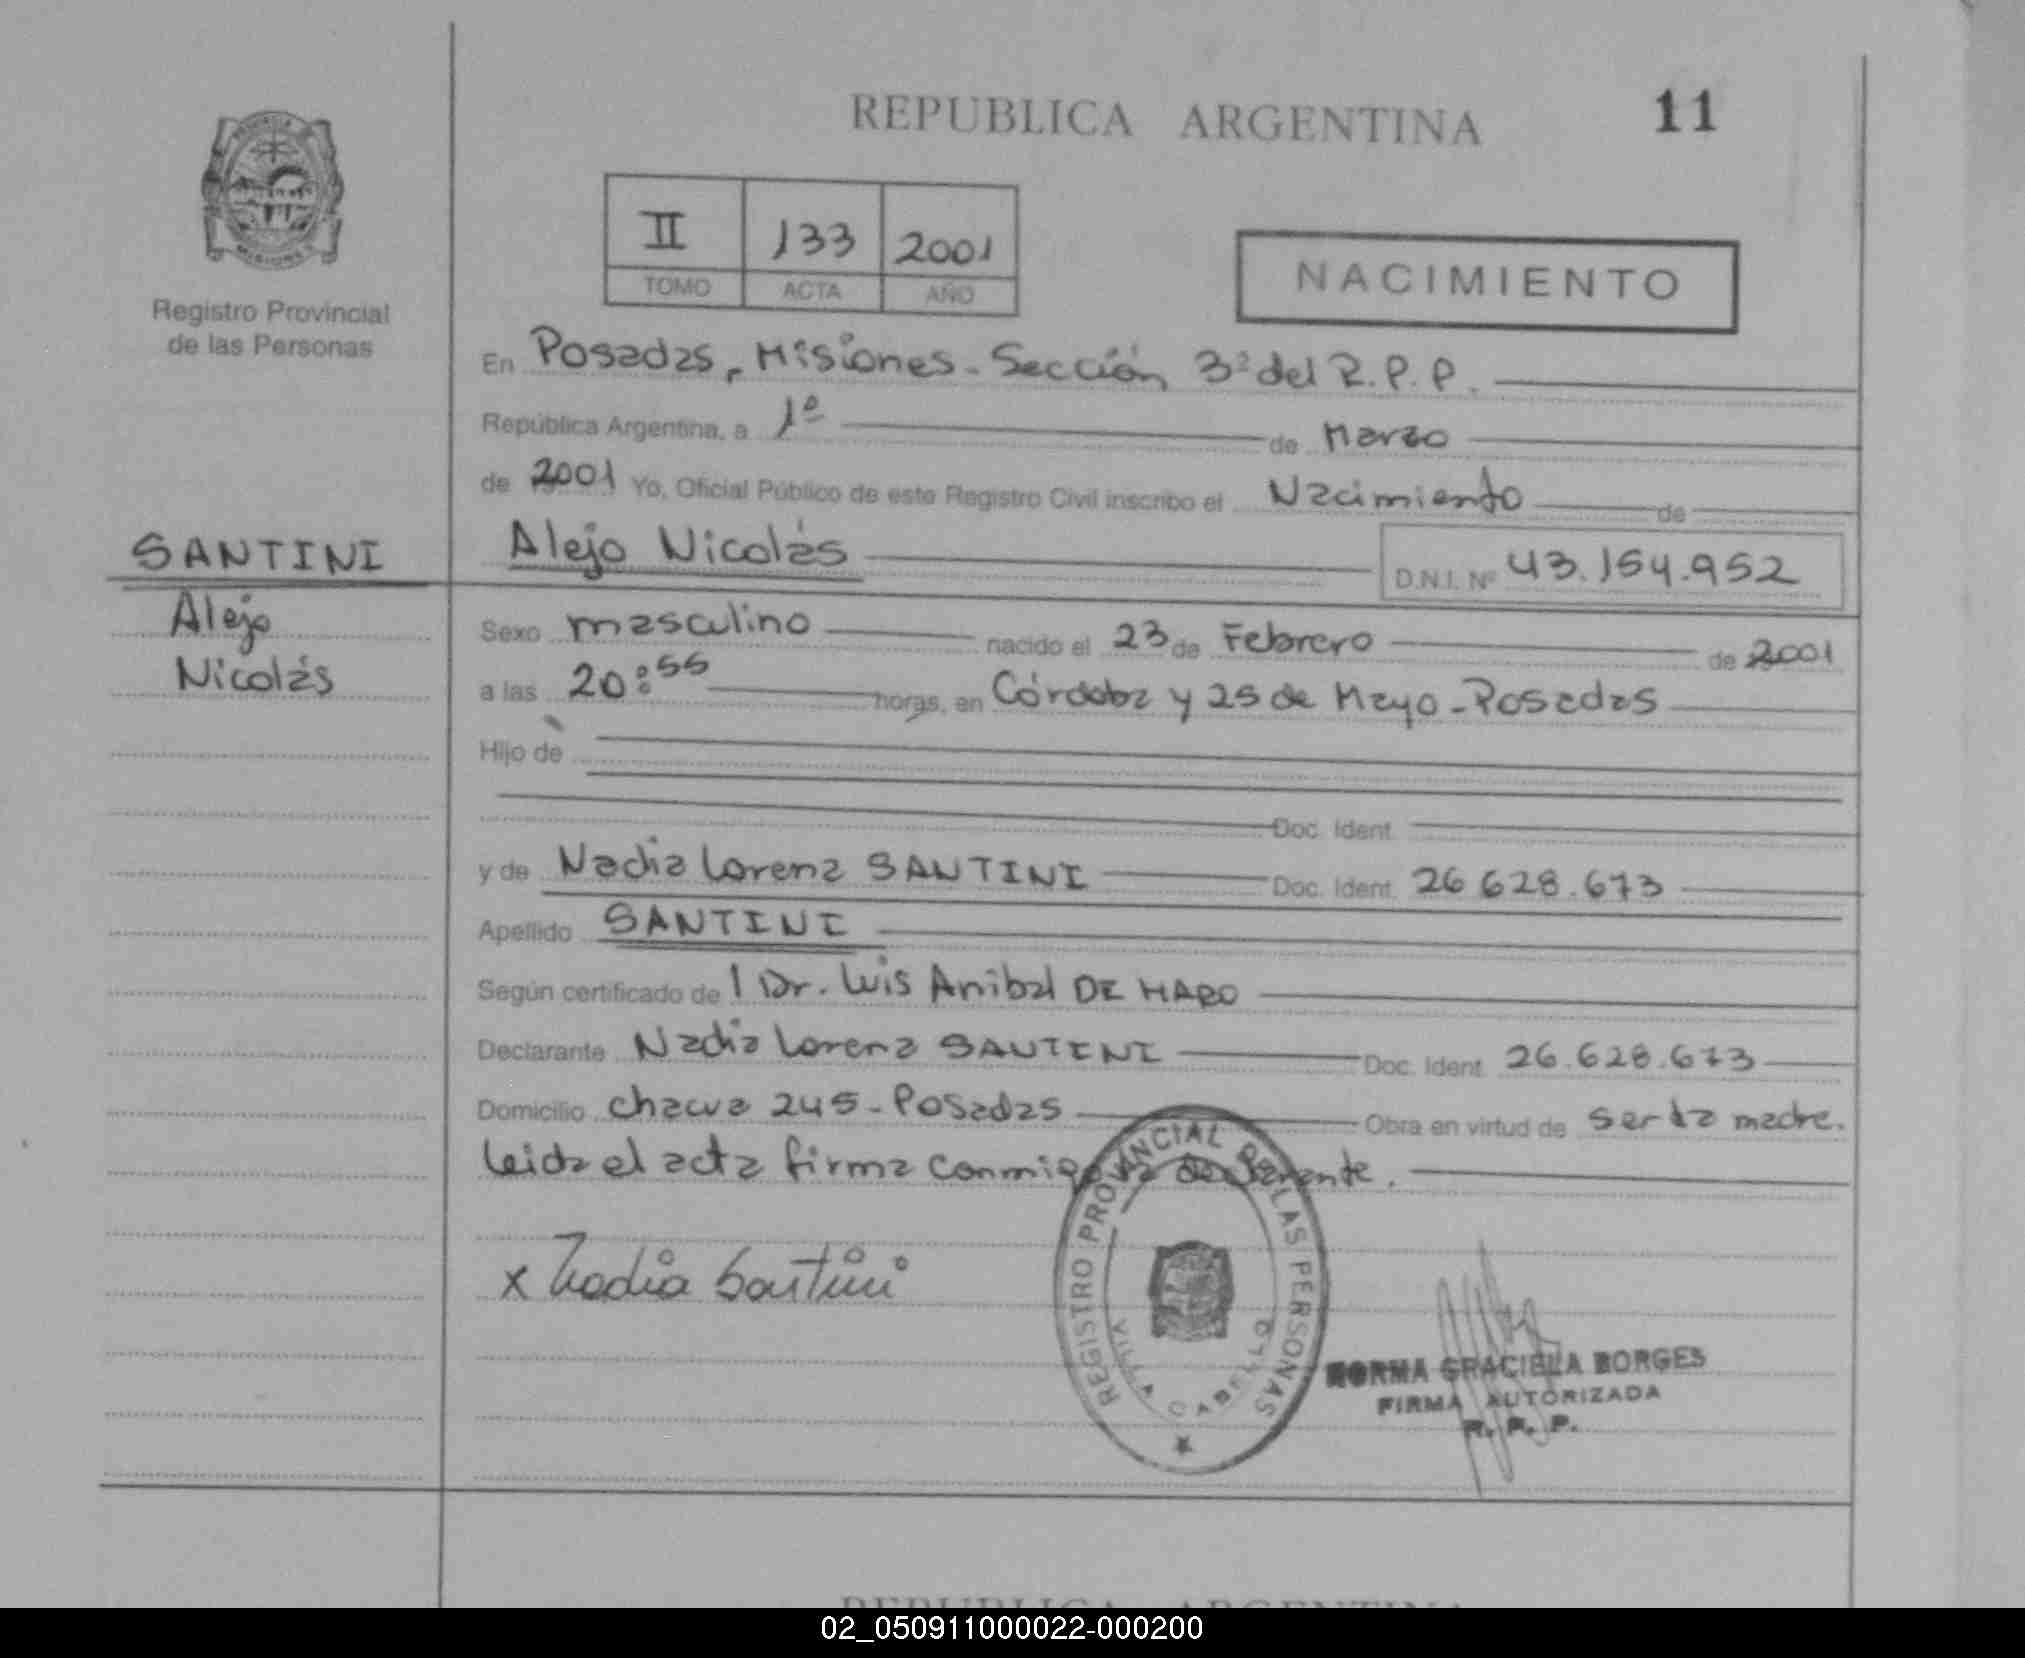 REPUBLICA ARGENTINA 11
PROVINCIA
MISIONES
Registro Provincial
de las Personas
II 133 2001
TOMO ACTA AÑO
NACIMIENTO
En Posadas, Misiones - Sección 3ª del R.P.P.
República Argentina, a 1º de Marzo
de 2001 Yo, Oficial Público de este Registro Civil inscribo el Nacimiento de
SANTINI
Alejo
Nicolás
Alejo Nicolás D.N.I. Nº 43.154.952
Sexo masculino nacido el 23 de Febrero de 2001
a las 20:55 horas, en Córdoba y 25 de Mayo - Posadas
Hijo de
Doc. Ident.
y de Nadia Lorena SANTINI Doc. Ident. 26 628.673
Apellido SANTINI
Según certificado de l Dr. Luis Anibal DE HARO
Declarante Nadia Lorena SANTINI Doc. Ident. 26.628.673
Domicilio 245 - Posadas Obra en virtud de ser la madre.
Leida el acta firma conmigo la declarante.
x Nadia Santini
REGISTRO PROVINCIAL DE LAS PERSONAS
VILLA CABELLO
NORMA GRACIELA BORGES
FIRMA AUTORIZADA
R. P. P.
REPUBLICA ARGENTINA
02_050911000022-000200